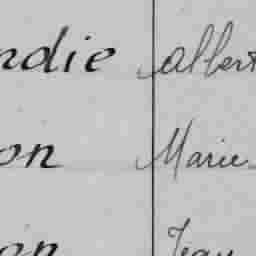 ndie Albert
on Marie
on Jean